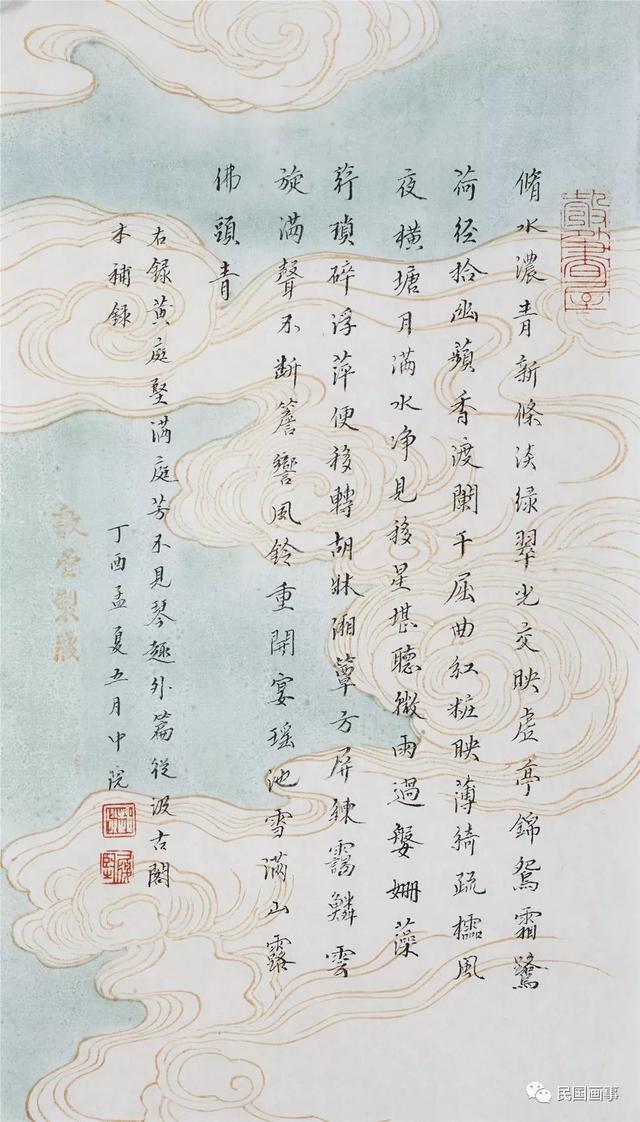 脩水濃青新條淡緑翠光交映虛亭錦鴛霜鷺
荷徑拾幽蘋香渡闌干屈曲紅粧映薄綺疏櫺風
夜橫塘月满水净見移星堪聽微雨過媻姍藻
荇瑣碎浮萍便移轉胡牀湘簟方屏練靄鱗雲
旋满聲不斷簷響風鈴重開宴瑶池雪满山露
佛頭青
右録黄庭堅满庭芳不見琴趣外篇從汲古閣
本補録
丁酉孟夏五月中浣
民国画事